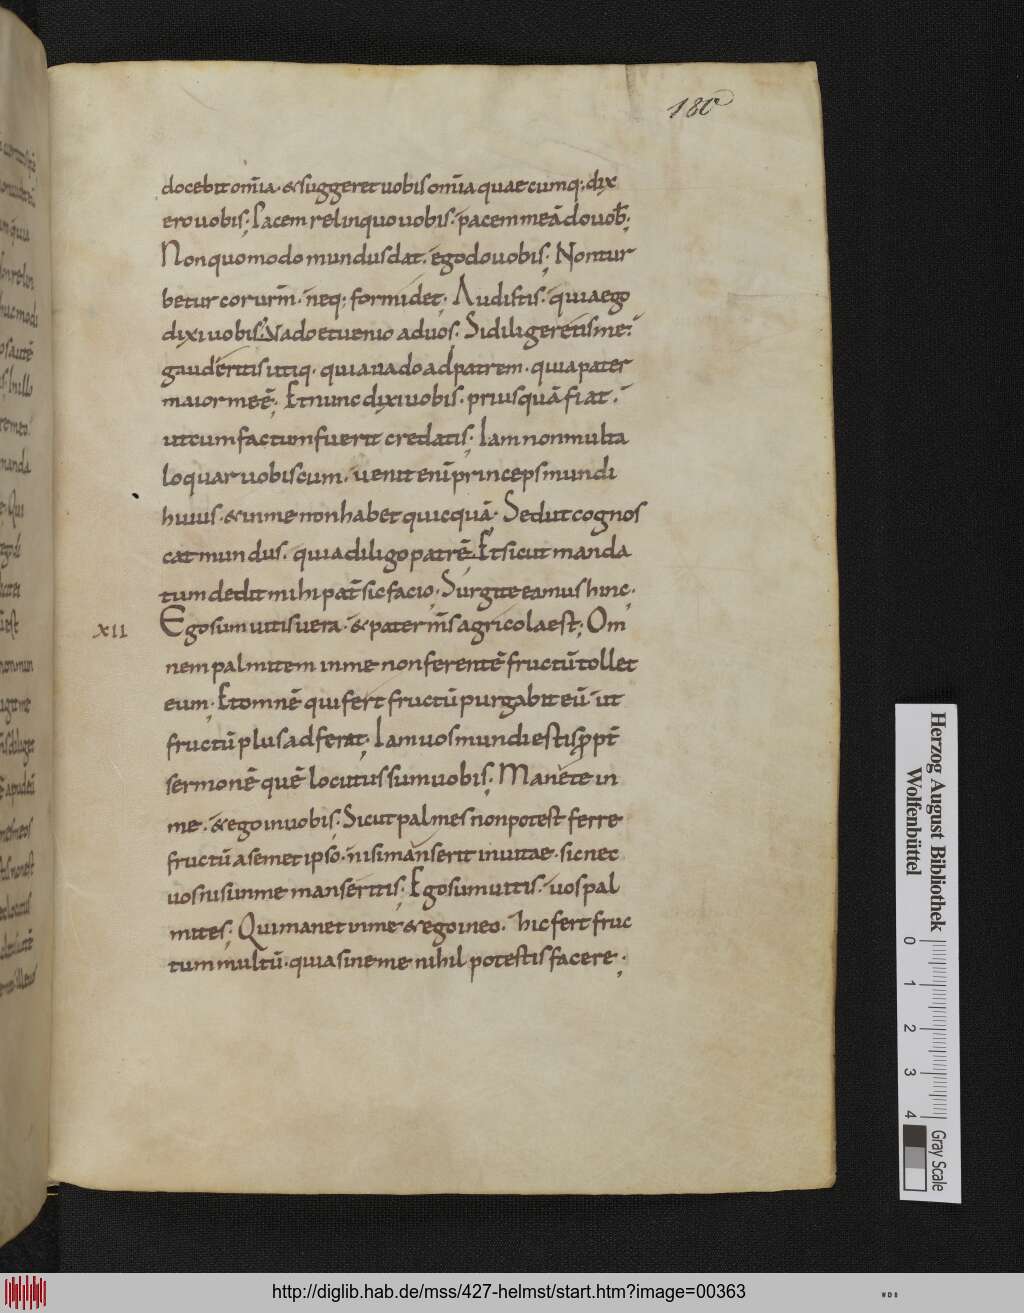 180
docebit om̄ia · & suggeret uobis om̄ia quaecumq; dix
ero uobis; Pacem relinquo uobis · pacem meā do uob̄;
Non quomodo mundus dat · ego do uobis; Non tur
betur cor ur̄m · neq; formidet; Audistis · quia ego
dixi uobis · Vado et uenio ad uos · Si diligeretis me ·
gauderitis utiq · quia uado ad patrem · quia pater
maior me ē; Et nunc dixi uobis · prius quā fiat ·
ut cum factum fuerit credatis; Iam non multa
loquar uobiscum · uenit enī princeps mundi
huius · & in me non habet quicquā · Sed ut cognos
cat mundus · quia diligo patrē · Et sicut manda
tum dedit mihi pat̄ sic facio; Surgite eamus hinc;
XII Ego sum uitis uera · & pater m̄s agricola est; Om
nem palmitem in me non ferentē fructū tollet
eum; Et omnē qui fert fructū purgabit eū · ut
fructū plus adferat; Iam uos mundi estis ꝓpt̄
sermonē quē locutus sum uobis; Manete in
me · & ego in uobis; Sicut palmes non potest ferre
fructū a semet ipso · nisi manserit in uitae · sic nec
uos nisi in me manseritis; Ego sum uitis · uos pal
mites; Qui manet in me & ego in eo · hic fert fruc
tum multū · quia sine me nihil potestis facere;
Herzog August Bibliothek
Wolfenbüttel
0 1 2 3 4
Gray Scale
http://diglib.hab.de/mss/427-helmst/start.htm?image=00363